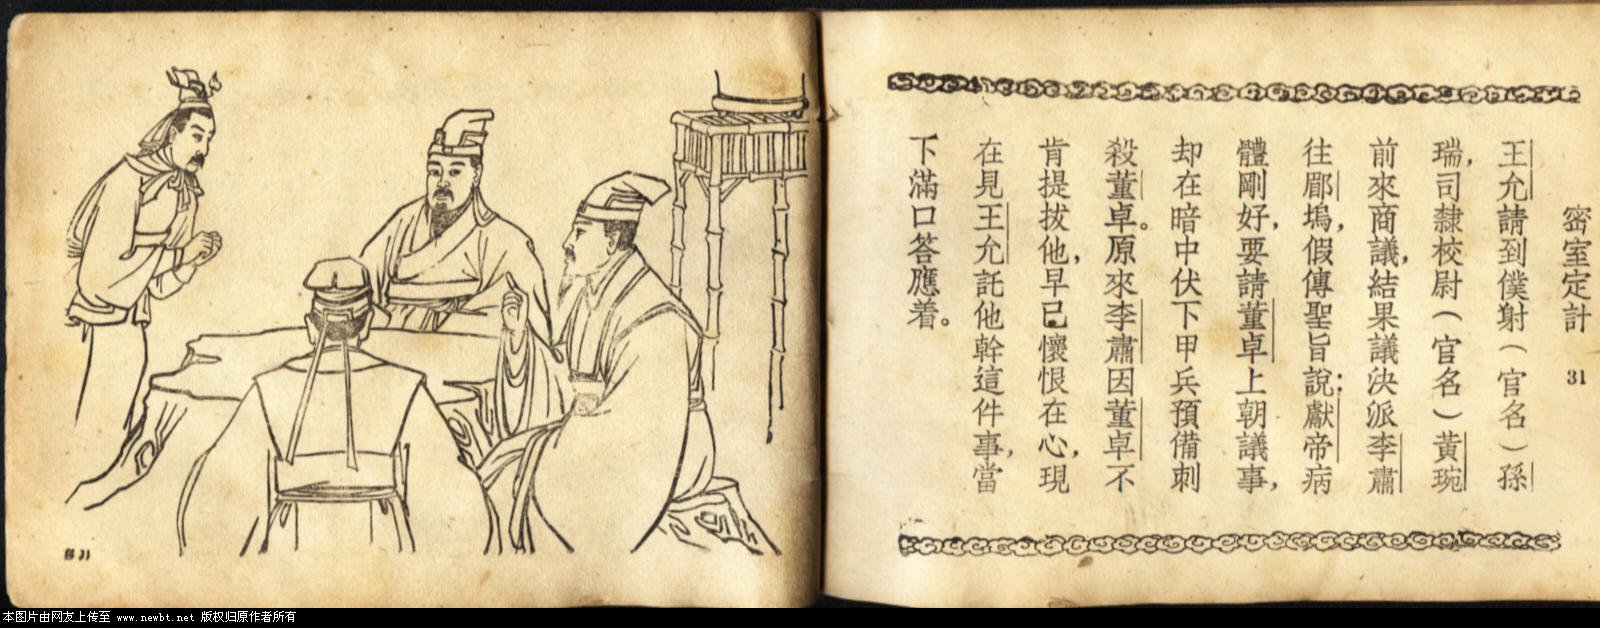 密室定計 31
王允請到僕射（官名）孫
瑞，司隸校尉（官名）黃琬
前來商議，結果議決派李肅
往郿塢，假傳聖旨說：獻帝病
體剛好，要請董卓上朝議事，
却在暗中伏下甲兵預備刺
殺董卓。原來李肅因董卓不
肯提拔他，早已懷恨在心，現
在見王允託他幹這件事，當
下滿口答應着。
31
本图片由网友上传至 www.newbt.net 版权归原作者所有